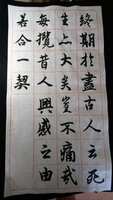 終期於盡古人云死
生亦大矣豈不痛哉
每攬昔人興感之由
若合一契